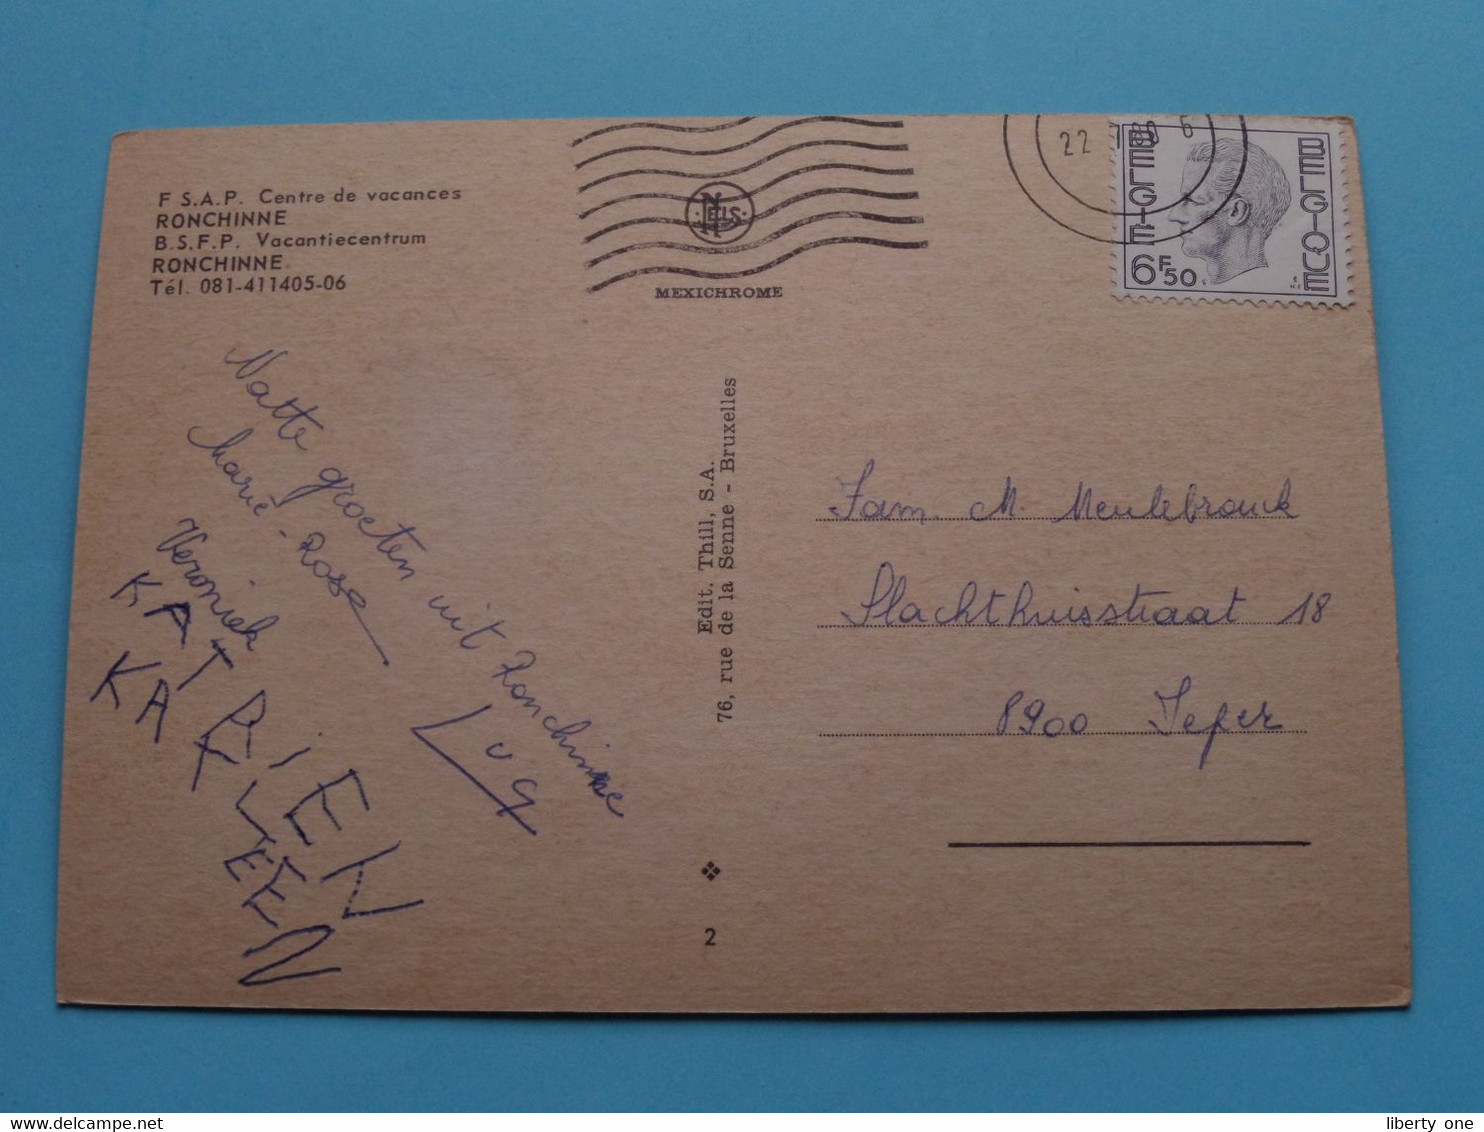 F S.A.P. Centre de vacances
RONCHINNE
B.S.F.P. Vacantiecentrum
RONCHINNE
Tél. 081-411405-06
NELS
MEXICHROME
22
6
BELGIE
BELGIQUE
6F50
Natte groeten uit Ronchinne
Marie-Rose
Veroniek
Luc
KATRIEN
KATLEEN
Edit. Thill, S.A.
76, rue de la Senne - Bruxelles
2
Fam. M. Meulebrouck
Slachthuisstraat 18
8900 Ieper
liberty one